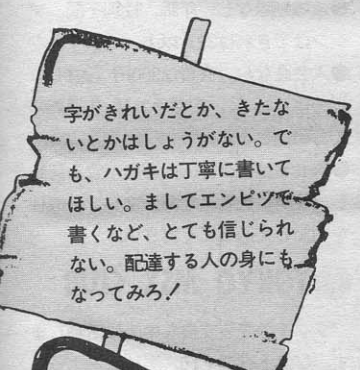 字がきれいだとか、きたな
いとかはしょうがない。で
も、ハガキは丁寧に書いて
ほしい。ましてエンピツで
書くなど、とても信じられ
ない。配達する人の身にも
なってみろ!